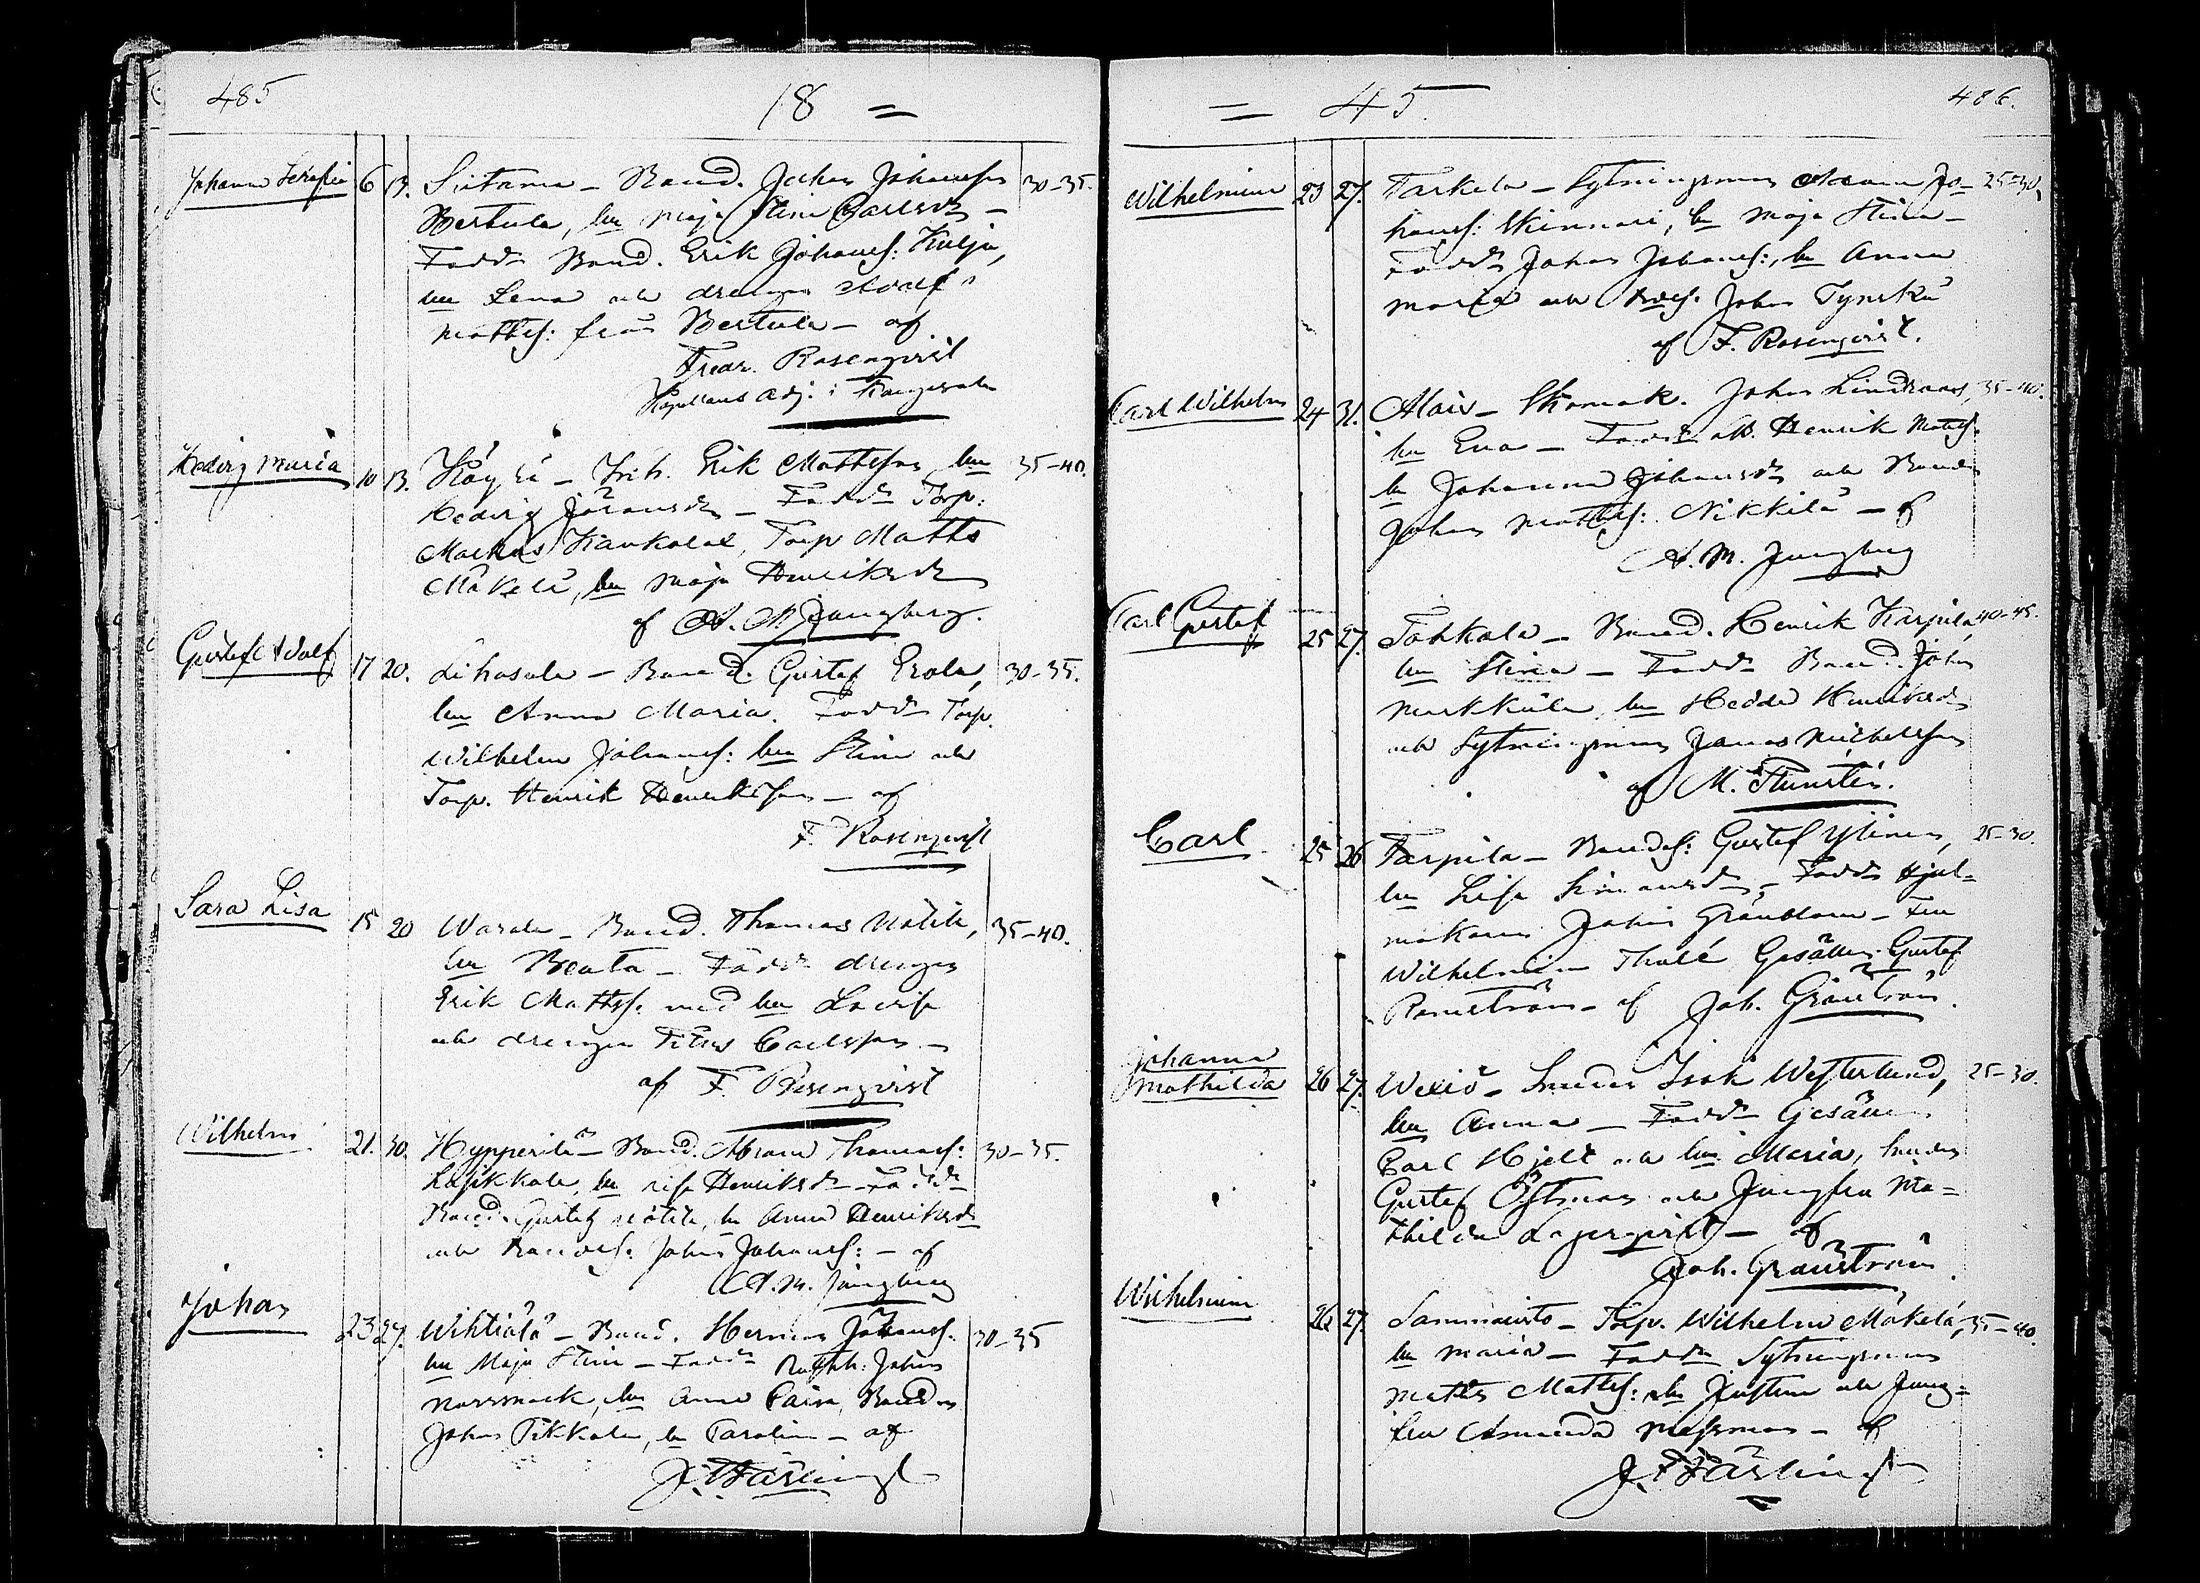 485
18 =
Johanna Serafia 6 13. Sutama - Bond. Johan Johansson 30-35.
Bertula, hu Maja Stina Carlsdr -
Fadd. Bond. Erik Johanss:
hu Lena och drengen Adolf
Mattss: från Bertula - af
Fredr. Rosenqvist
Kapellans adj. i Kangasala
Hedvig Maria 10 13. Erik Mattsson, hu 35-40.
Hedvig Göransdr - Fadd. Torp.
Markus Kaukolai, Torp Matts
Mäkelä, hu Maja Henriksdr
af A. M. Jungberg.
Gustaf Adolf 17 20. Lihasula - Bond. Gustaf Erola, 30-35.
hu Anna Maria. Fadd. Torp.
Wilhelm Johanss: hu Stina och
Torp. Henrik Henriksson - af
F. Rosenqvist
Sara Lisa 15 20 Bond. Thomas Uotila, 35-40.
hu Beata - Fadd. drengen
Erik Mattss. med hu Lovisa
och drengen Titus Carlsson -
af F. Rosenqvist
Wilhelm 21. 30. Hypperilä - Bond. Abram Thomass: 30-35.
hu Lisa Henriksdr - Fadd.
Bond. Gustaf Uotila, hu Anna Henriksdr
och Bondes: Johan Johanss: - af
A. M. Jungberg
Johan 23 27. Wihtiälä - Bond. Herman Johanss. 30-35
hu Maja Stina - Fadd. Johan
Norrmark, hu Anna Caisa, Bonden
Johan Pikkala, hu Carolina - af
= 45. 486.
Wilhelmina 23 27. Tarkela - Sytningsman Jo- 25-30
hanss: Skinnari, hu Maja Stina -
Fadd. Johan Johanss:, hu Anna
Maria och Bdes. Johan Tynskä
af F. Rosenqvist.
Carl Wilhelm 24 31. Alais - Skomak. Johan Lindroos, 35-40.
hu Eva - Fadd. Henrik Matss.
hu Johanna Johansdr och Bonden
Johan Mattss: Nikkilä - af
A. M. Jungberg
Carl Gustaf 25 27. Tohkala - Bond. Henrik Karpila 40-45.
hu Stina - Fadd. Bond. Johan
Markkula, hu Hedda Henriksdr
och Sytningsman Jonas Michelsson
af M. Thurstén.
Carl 25 26 Tarpila - Bondes: Gustaf Ylinen, 25-30.
hu Lisa Simonsdr - Fadd. Hjul-
makaren Johan Granblom - Frn
Wilhelmina Thulé Gesällen Gustaf
Renström - af Joh. Granström.
Johanna
Mathilda 26 27. Wexiö - Smeden Isak Westerlund, 25-30.
hu Anna - Fadd. Gesällen
Carl Hjelt och hu Maria, Smeden
Gustaf Östman och Jungfru Ma-
thilda Lagerqvist - af
Joh. Granström
Wilhelmina 26 27. Sammaisto - Torp. Wilhelm Mäkelä, 35-40.
hu Maria - Fadd. Sytningsman
Matts Mattss: hu Justina och Jung-
fru Amanda - af